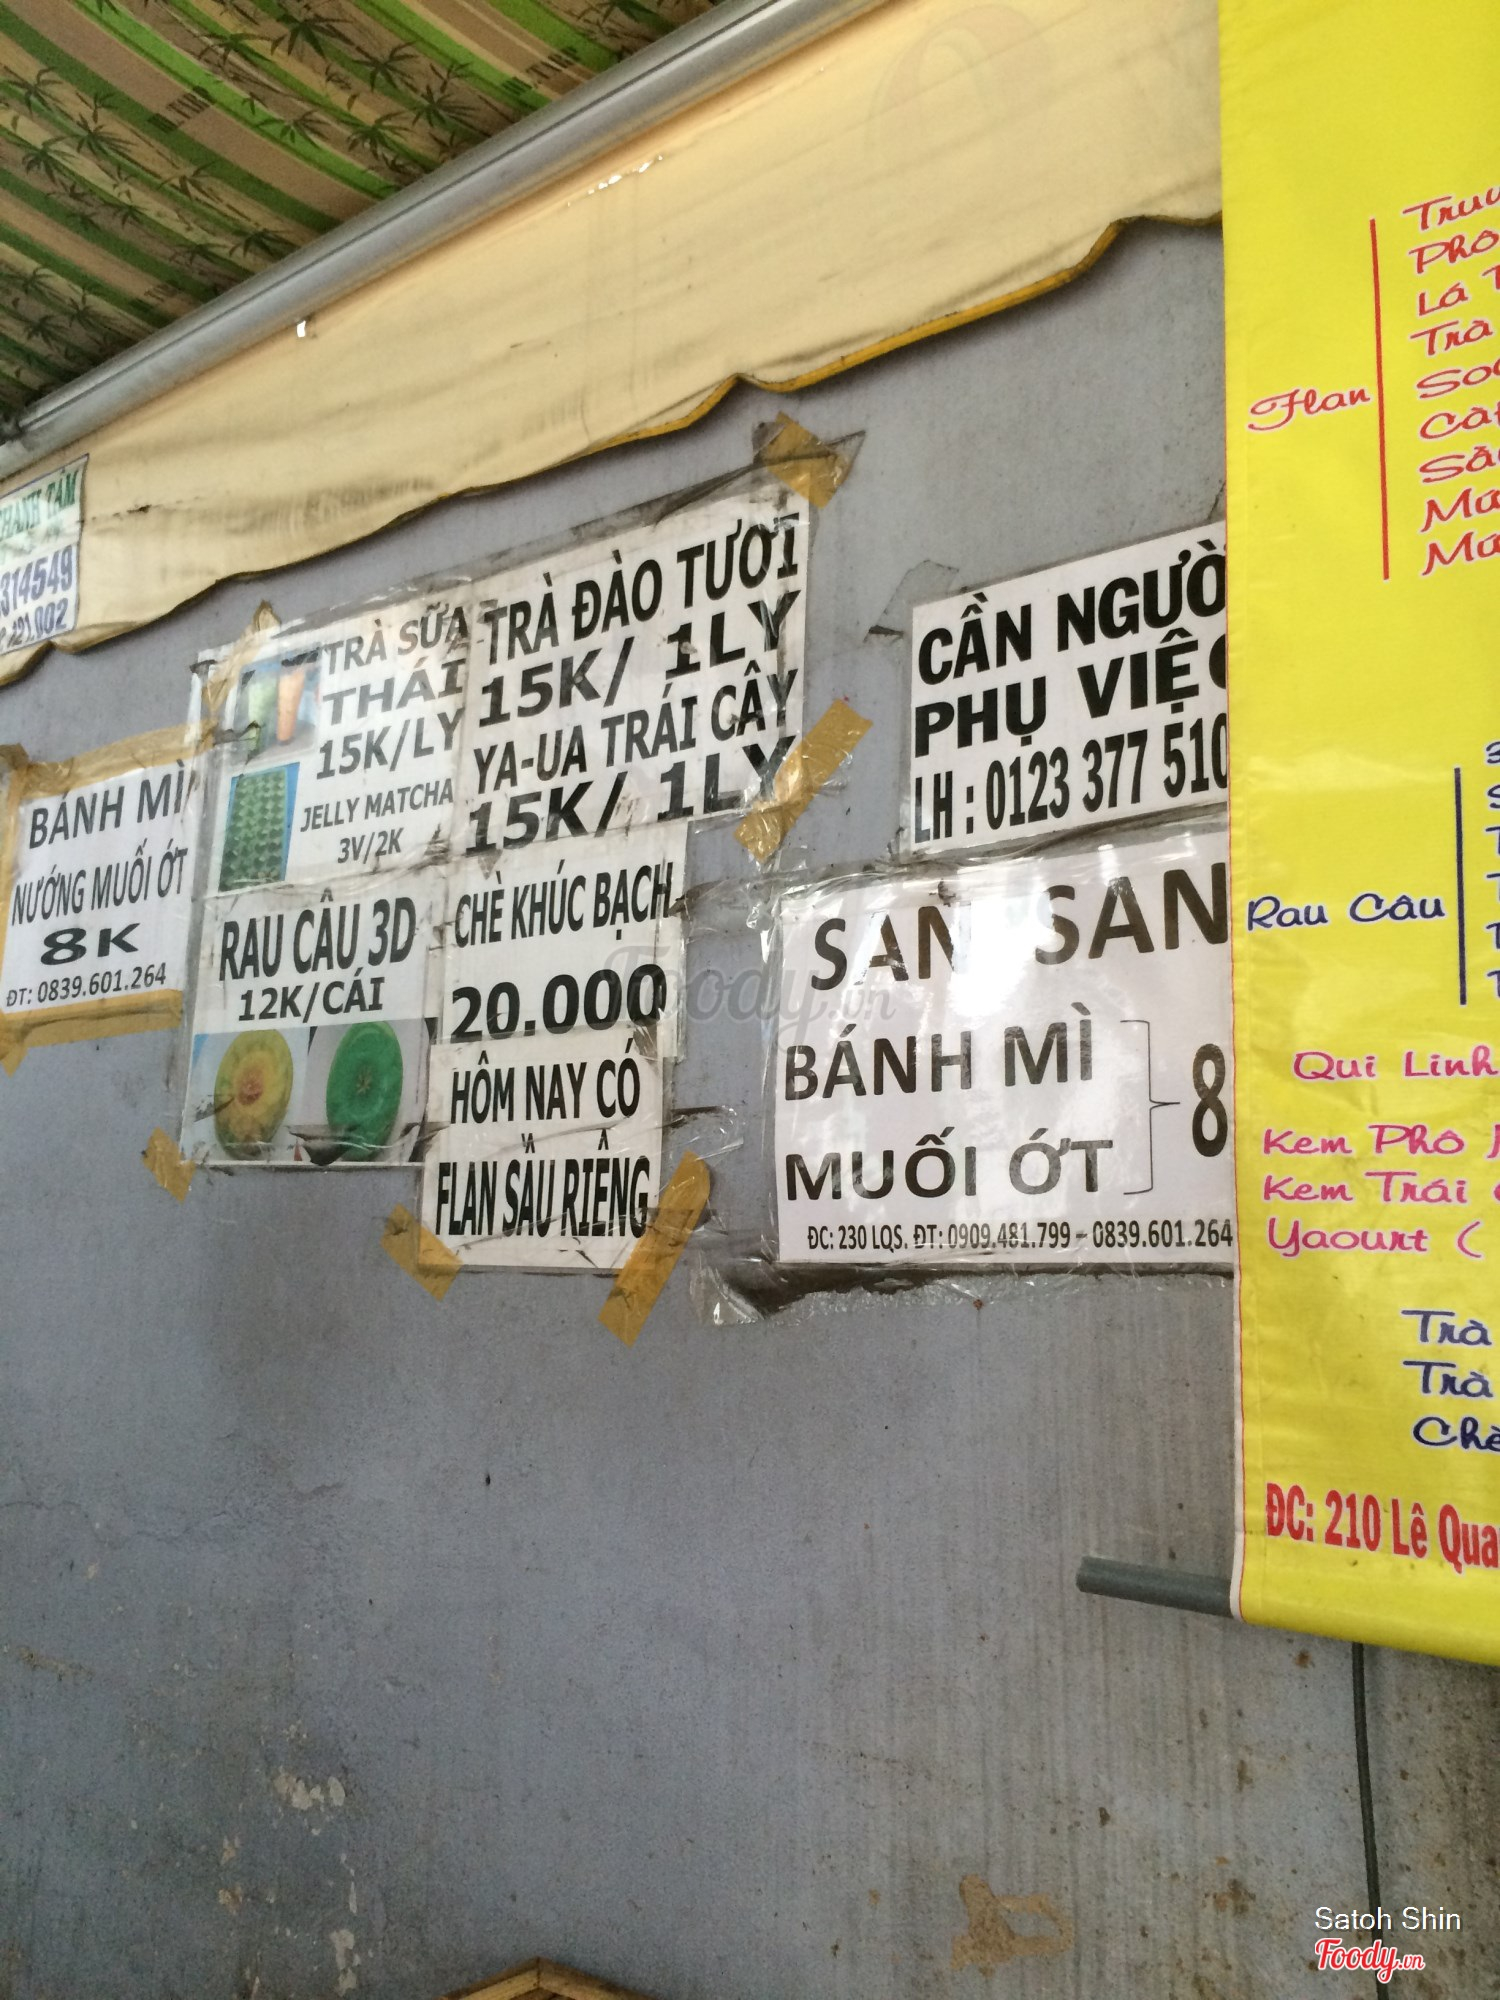 THANH TÂM
314549
BÁNH MÌ
NƯỚNG MUỐI ỚT
8K
ĐT: 0839.601.264
TRÀ SỮA
THÁI
15K/LY
JELLY MATCHA
3V/2K
RAU CÂU 3D
12K/CÁI
TRÀ ĐÀO TƯƠI
15K/ 1LY
YA-UA TRÁI CÂY
15K/ 1LY
CHÈ KHÚC BẠCH
20.000
HÔM NAY CÓ
FLAN SẦU RIÊNG
CẦN NGƯỜ
PHỤ VIỆC
LH : 0123 377 510
SAN SAN
BÁNH MÌ
MUỐI ỚT
8
ĐC: 230 LQS. ĐT: 0909.481.799 – 0839.601.264
Flan
Phô
Lá
Trà
Rau Câu
Qui Linh
Kem Phô
Kem Trái
Yaourt (
Trà
Trà
Chè
ĐC: 210 Lê Qua
Foody.vn
Satoh Shin
Foody.vn